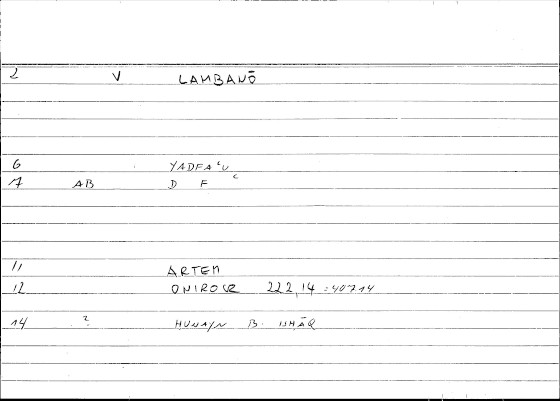 2 V LAMBANŌ
6 YADFAʿU
7 AB D F ʿ
11 ARTEM
12 ONIROCR 222,14 = 407 14
14 ? HUNAYN B. ISHĀQ